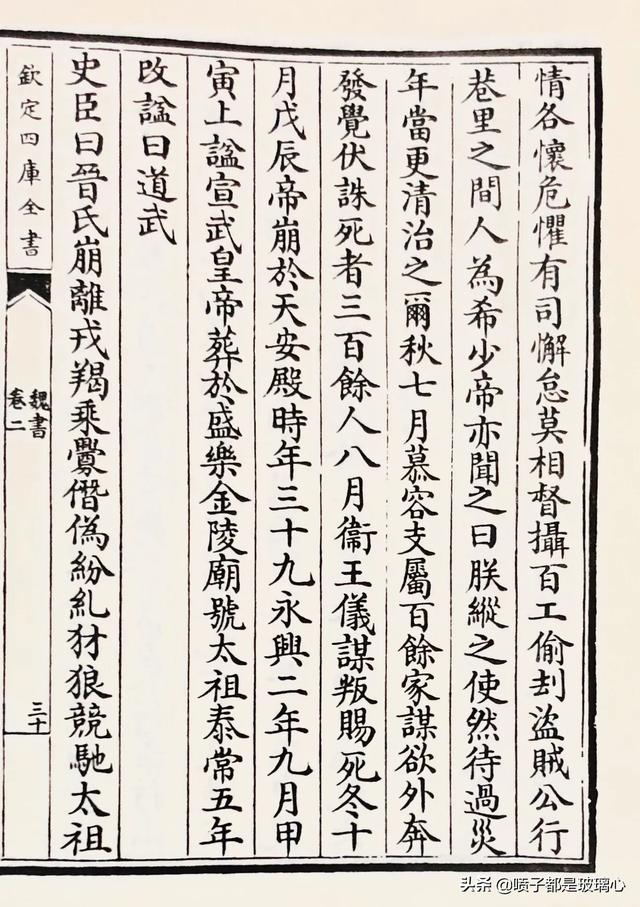 情各懷危懼有司懈怠莫相督攝百工偷刦盜賊公行
巷里之間人為希少帝亦聞之曰朕縱之使然待過災
年當更清治之爾秋七月慕容支屬百餘家謀欲外奔
發覺伏誅死者三百餘人八月衞王儀謀叛賜死冬十
月戊辰帝崩於天安殿時年三十九永興二年九月甲
寅上諡宣武皇帝葬於盛樂金陵廟號太祖泰常五年
改諡曰道武
史臣曰晉氏崩離戎羯乘釁僭偽紛糺犲狼競馳太祖
欽定四庫全書
魏書
卷二
三十
头条 @喷子都是玻璃心